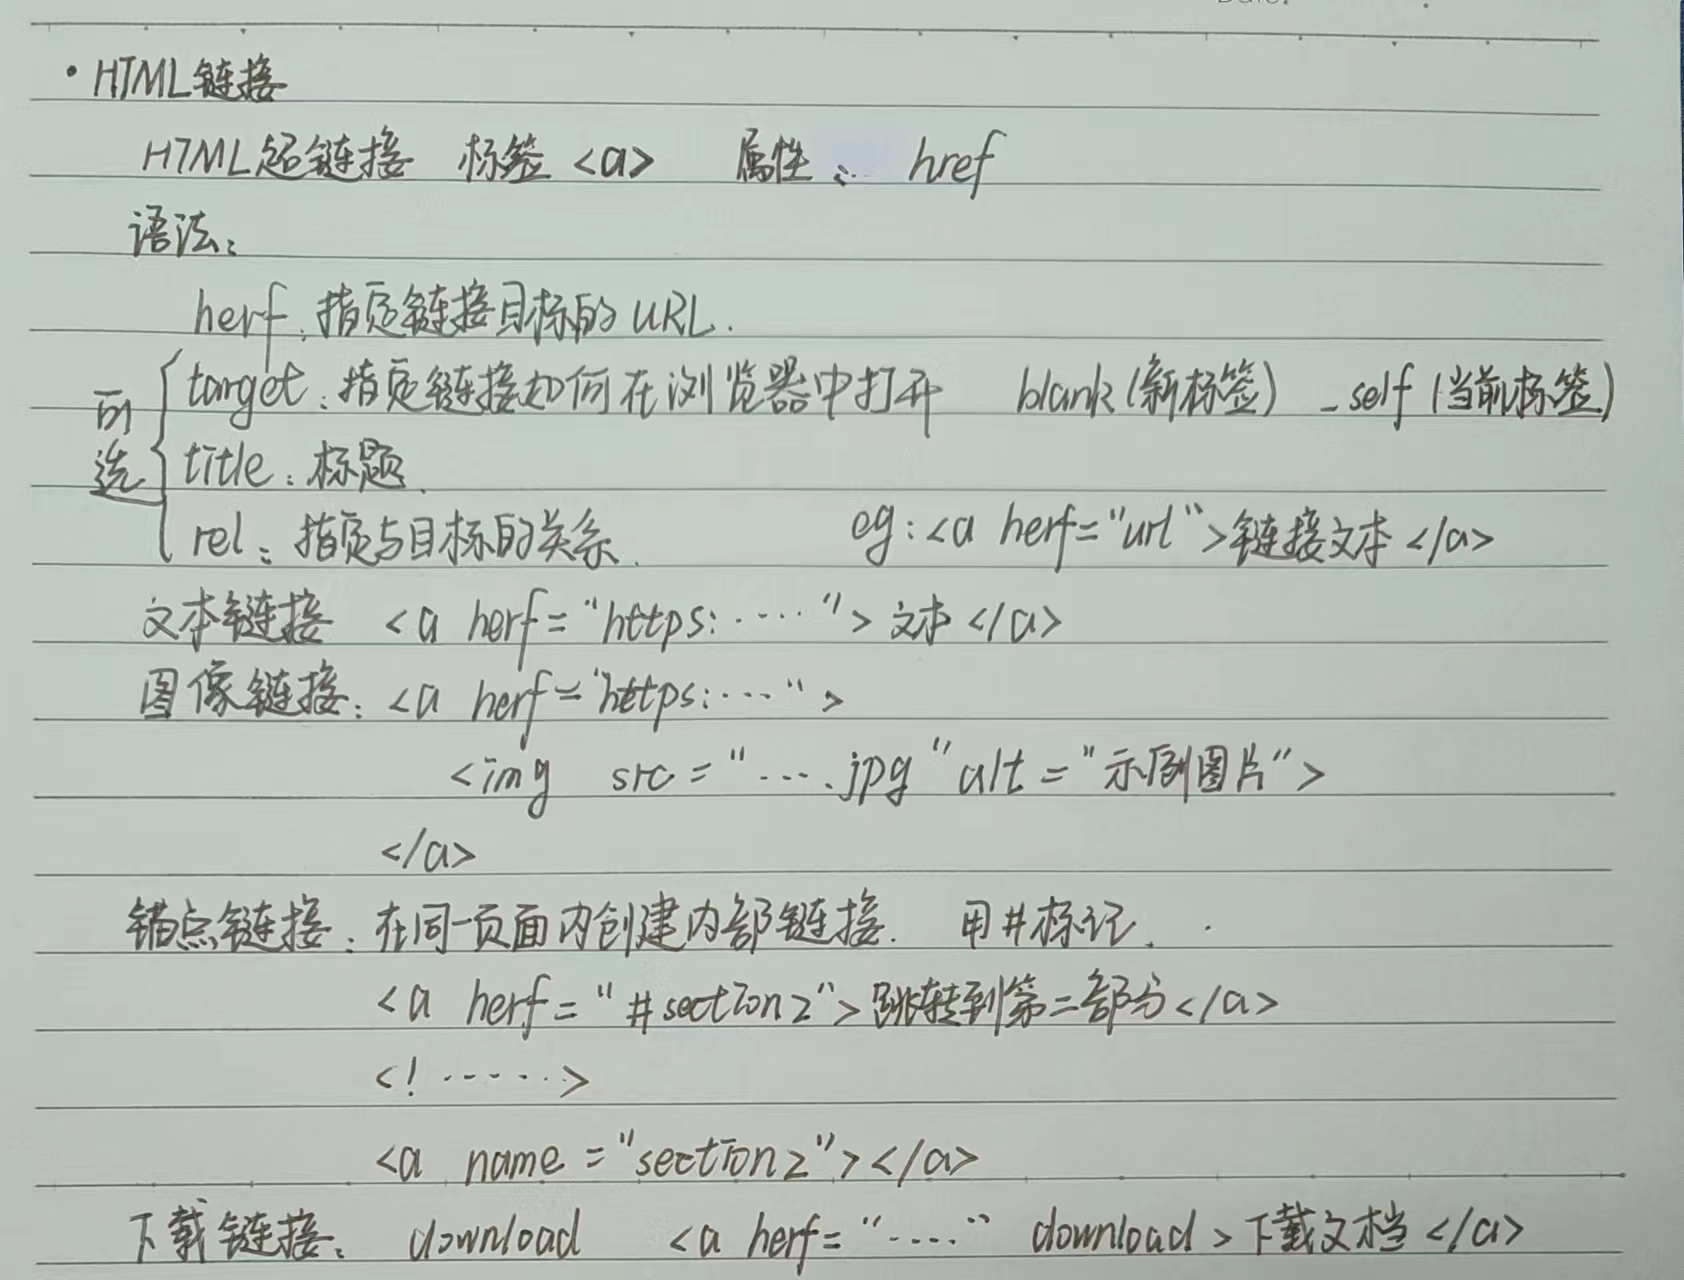 · HTML链接
HTML超链接 标签 <a> 属性: href
语法:
herf:指定链接目标的URL.
可选
target:指定链接如何在浏览器中打开 blank(新标签) _self(当前标签)
title:标题.
rel:指定与目标的关系. eg:<a herf="url">链接文本</a>
文本链接 <a herf="https:·····">文本</a>
图像链接:<a herf="https:····">
<img src="....jpg" alt="示例图片">
</a>
锚点链接:在同一页面内创建内部链接. 用#标记.
<a herf="#section2">跳转到第二部分</a>
<!······>
<a name="section2"></a>
下载链接: download <a herf="····" download>下载文档</a>